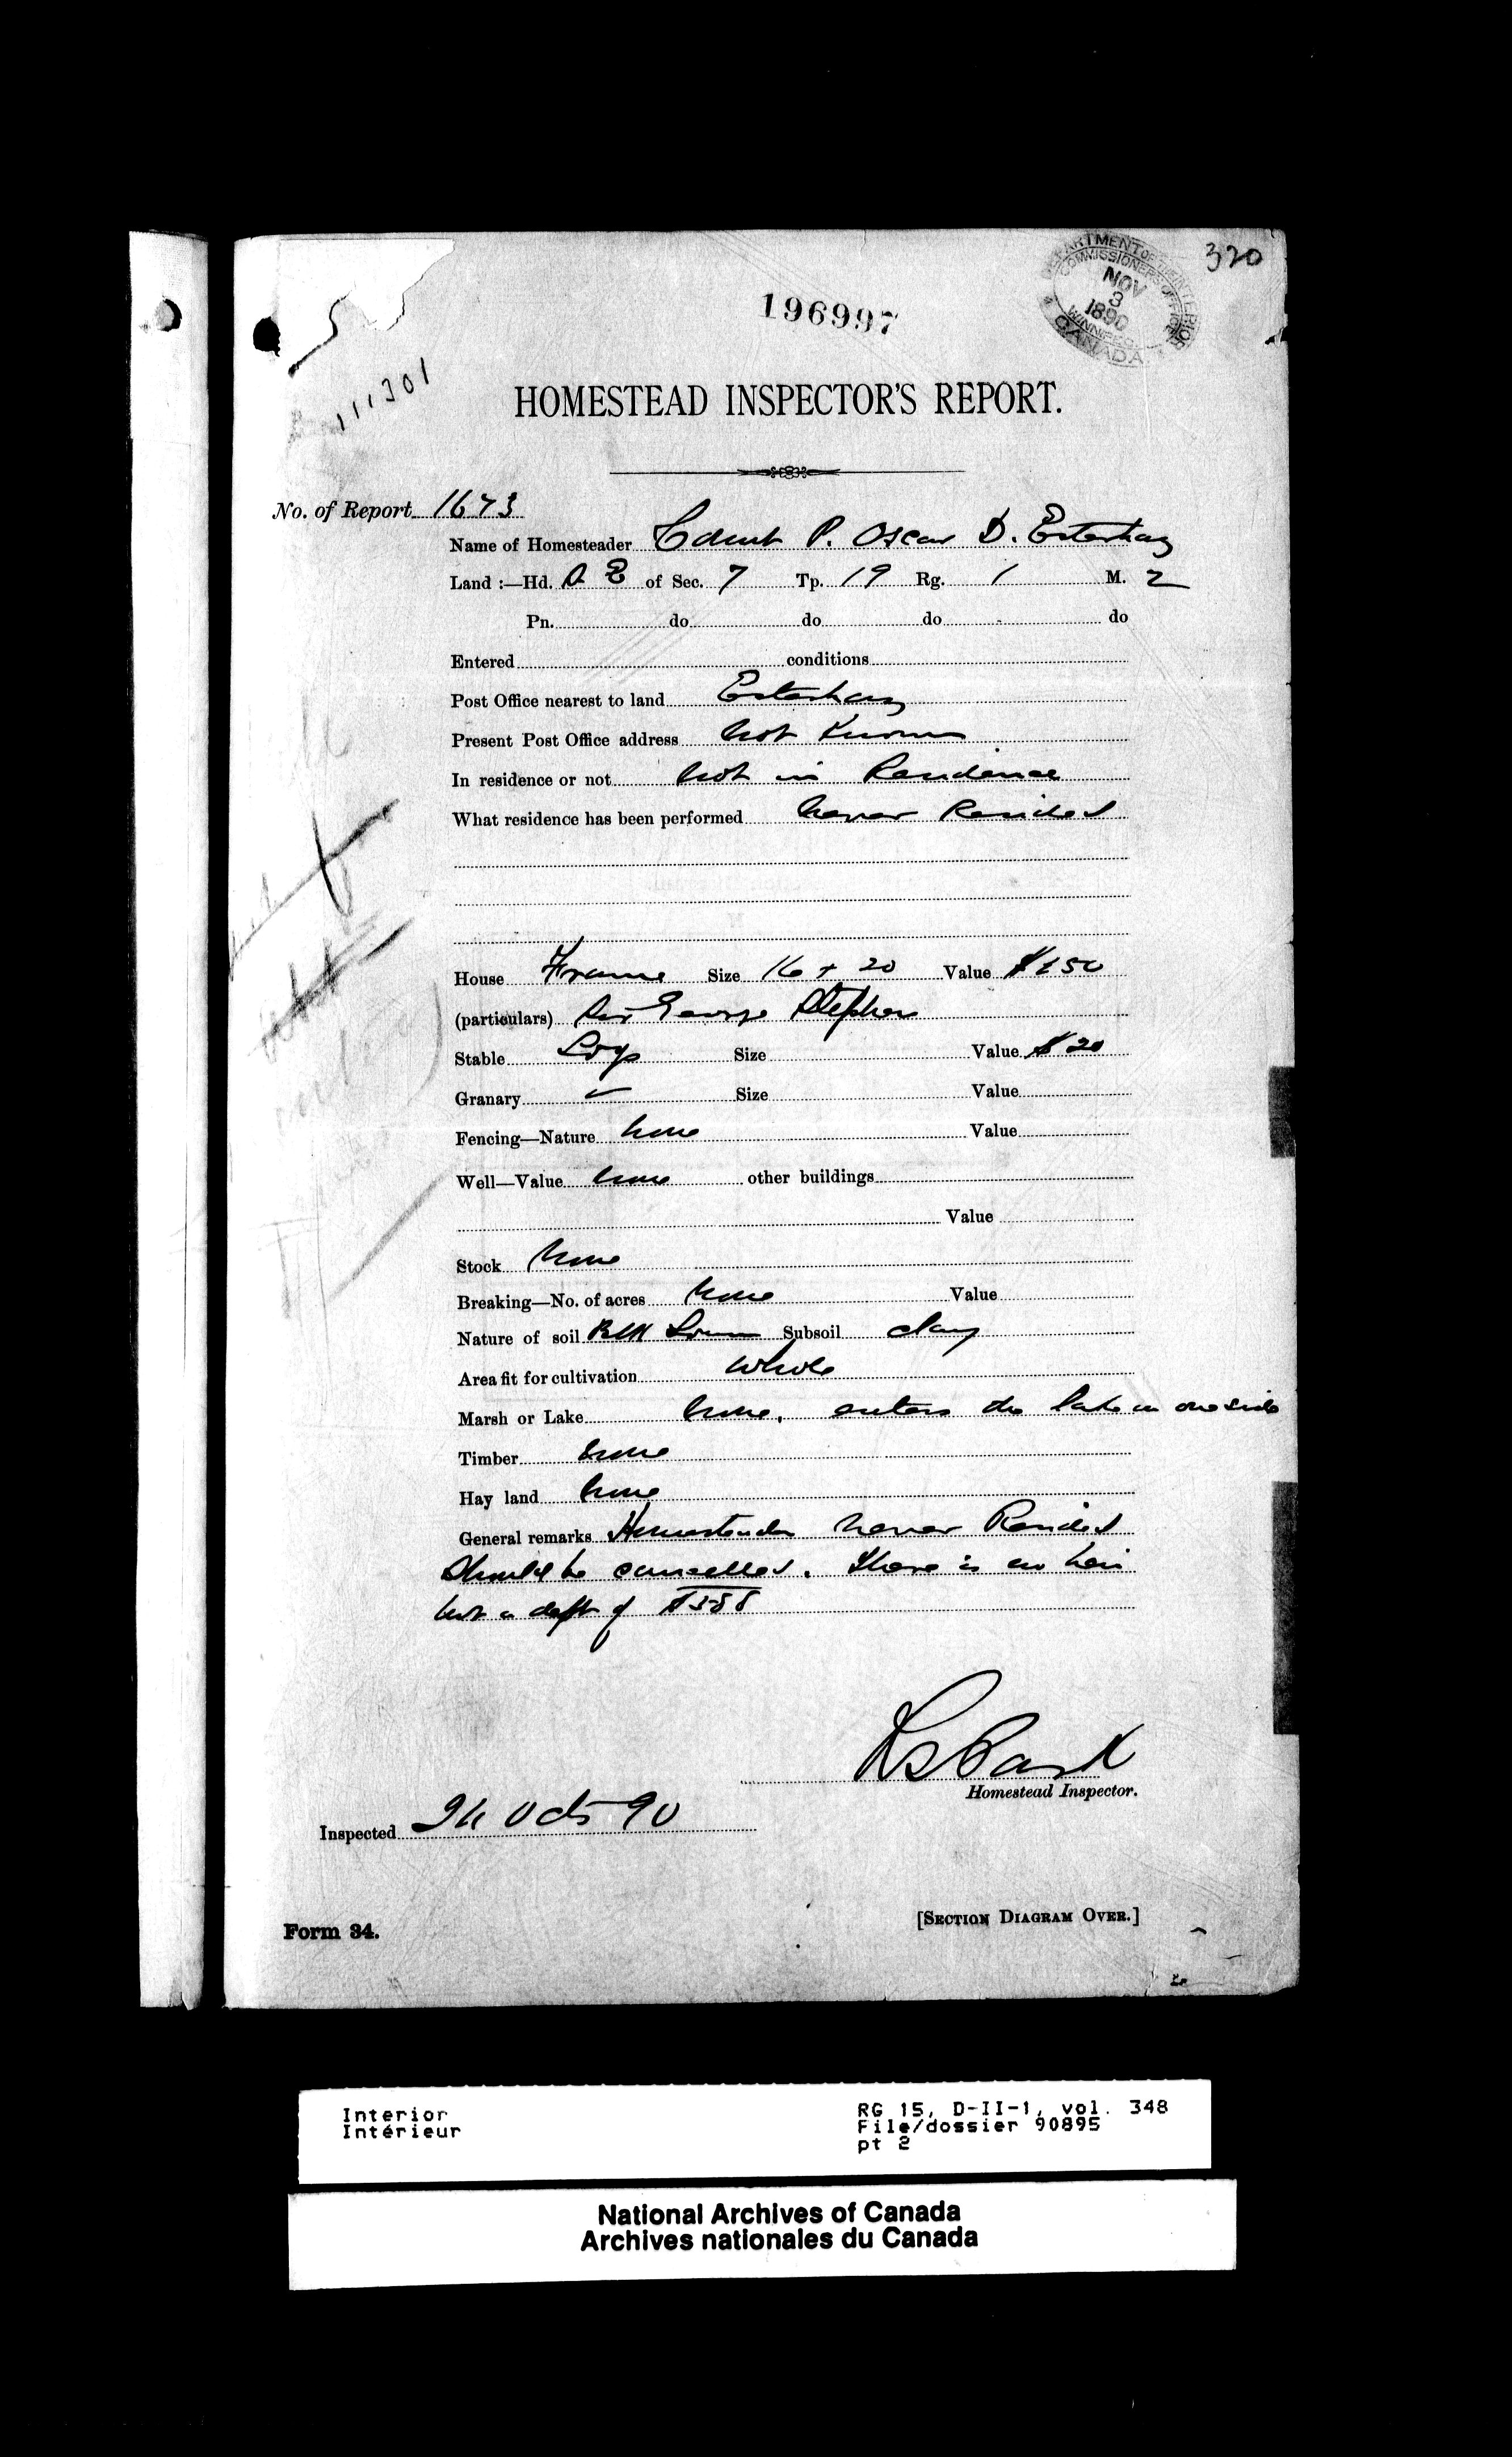 320
DEPARTMENT OF THE INTERIOR
COMMISSIONER'S OFFICE
NOV
3
1890
WINNIPEG
CANADA
196997
111301
HOMESTEAD INSPECTOR'S REPORT.
No. of Report 1673
Name of Homesteader Count P. Oscar D. Esterhazy
Land :—Hd. S E of Sec. 7 Tp. 19 Rg. 1 M. 2
Pn. do do do do
Entered conditions
Post Office nearest to land Esterhazy
Present Post Office address Not Known
In residence or not Not in Residence
What residence has been performed Never Resided
House Frame Size 16 + 20 Value $150
(particulars) Sir George Stephen
Stable Logs Size Value $20
Granary Size Value
Fencing—Nature None Value
Well—Value None other buildings
Value
Stock None
Breaking—No. of acres None Value
Nature of soil Blk Loam Subsoil Clay
Area fit for cultivation Whole
Marsh or Lake None, enters the lake on one side
Timber None
Hay land None
General remarks Homesteader Never Resided
Should be cancelled. There is no
but a debt of
Homestead Inspector.
Inspected 24 Oct 90
Form 34.
[SECTION DIAGRAM OVER.]
Interior
Intérieur
RG 15, D-II-1, vol. 348
File/dossier 90895
pt 2
National Archives of Canada
Archives nationales du Canada